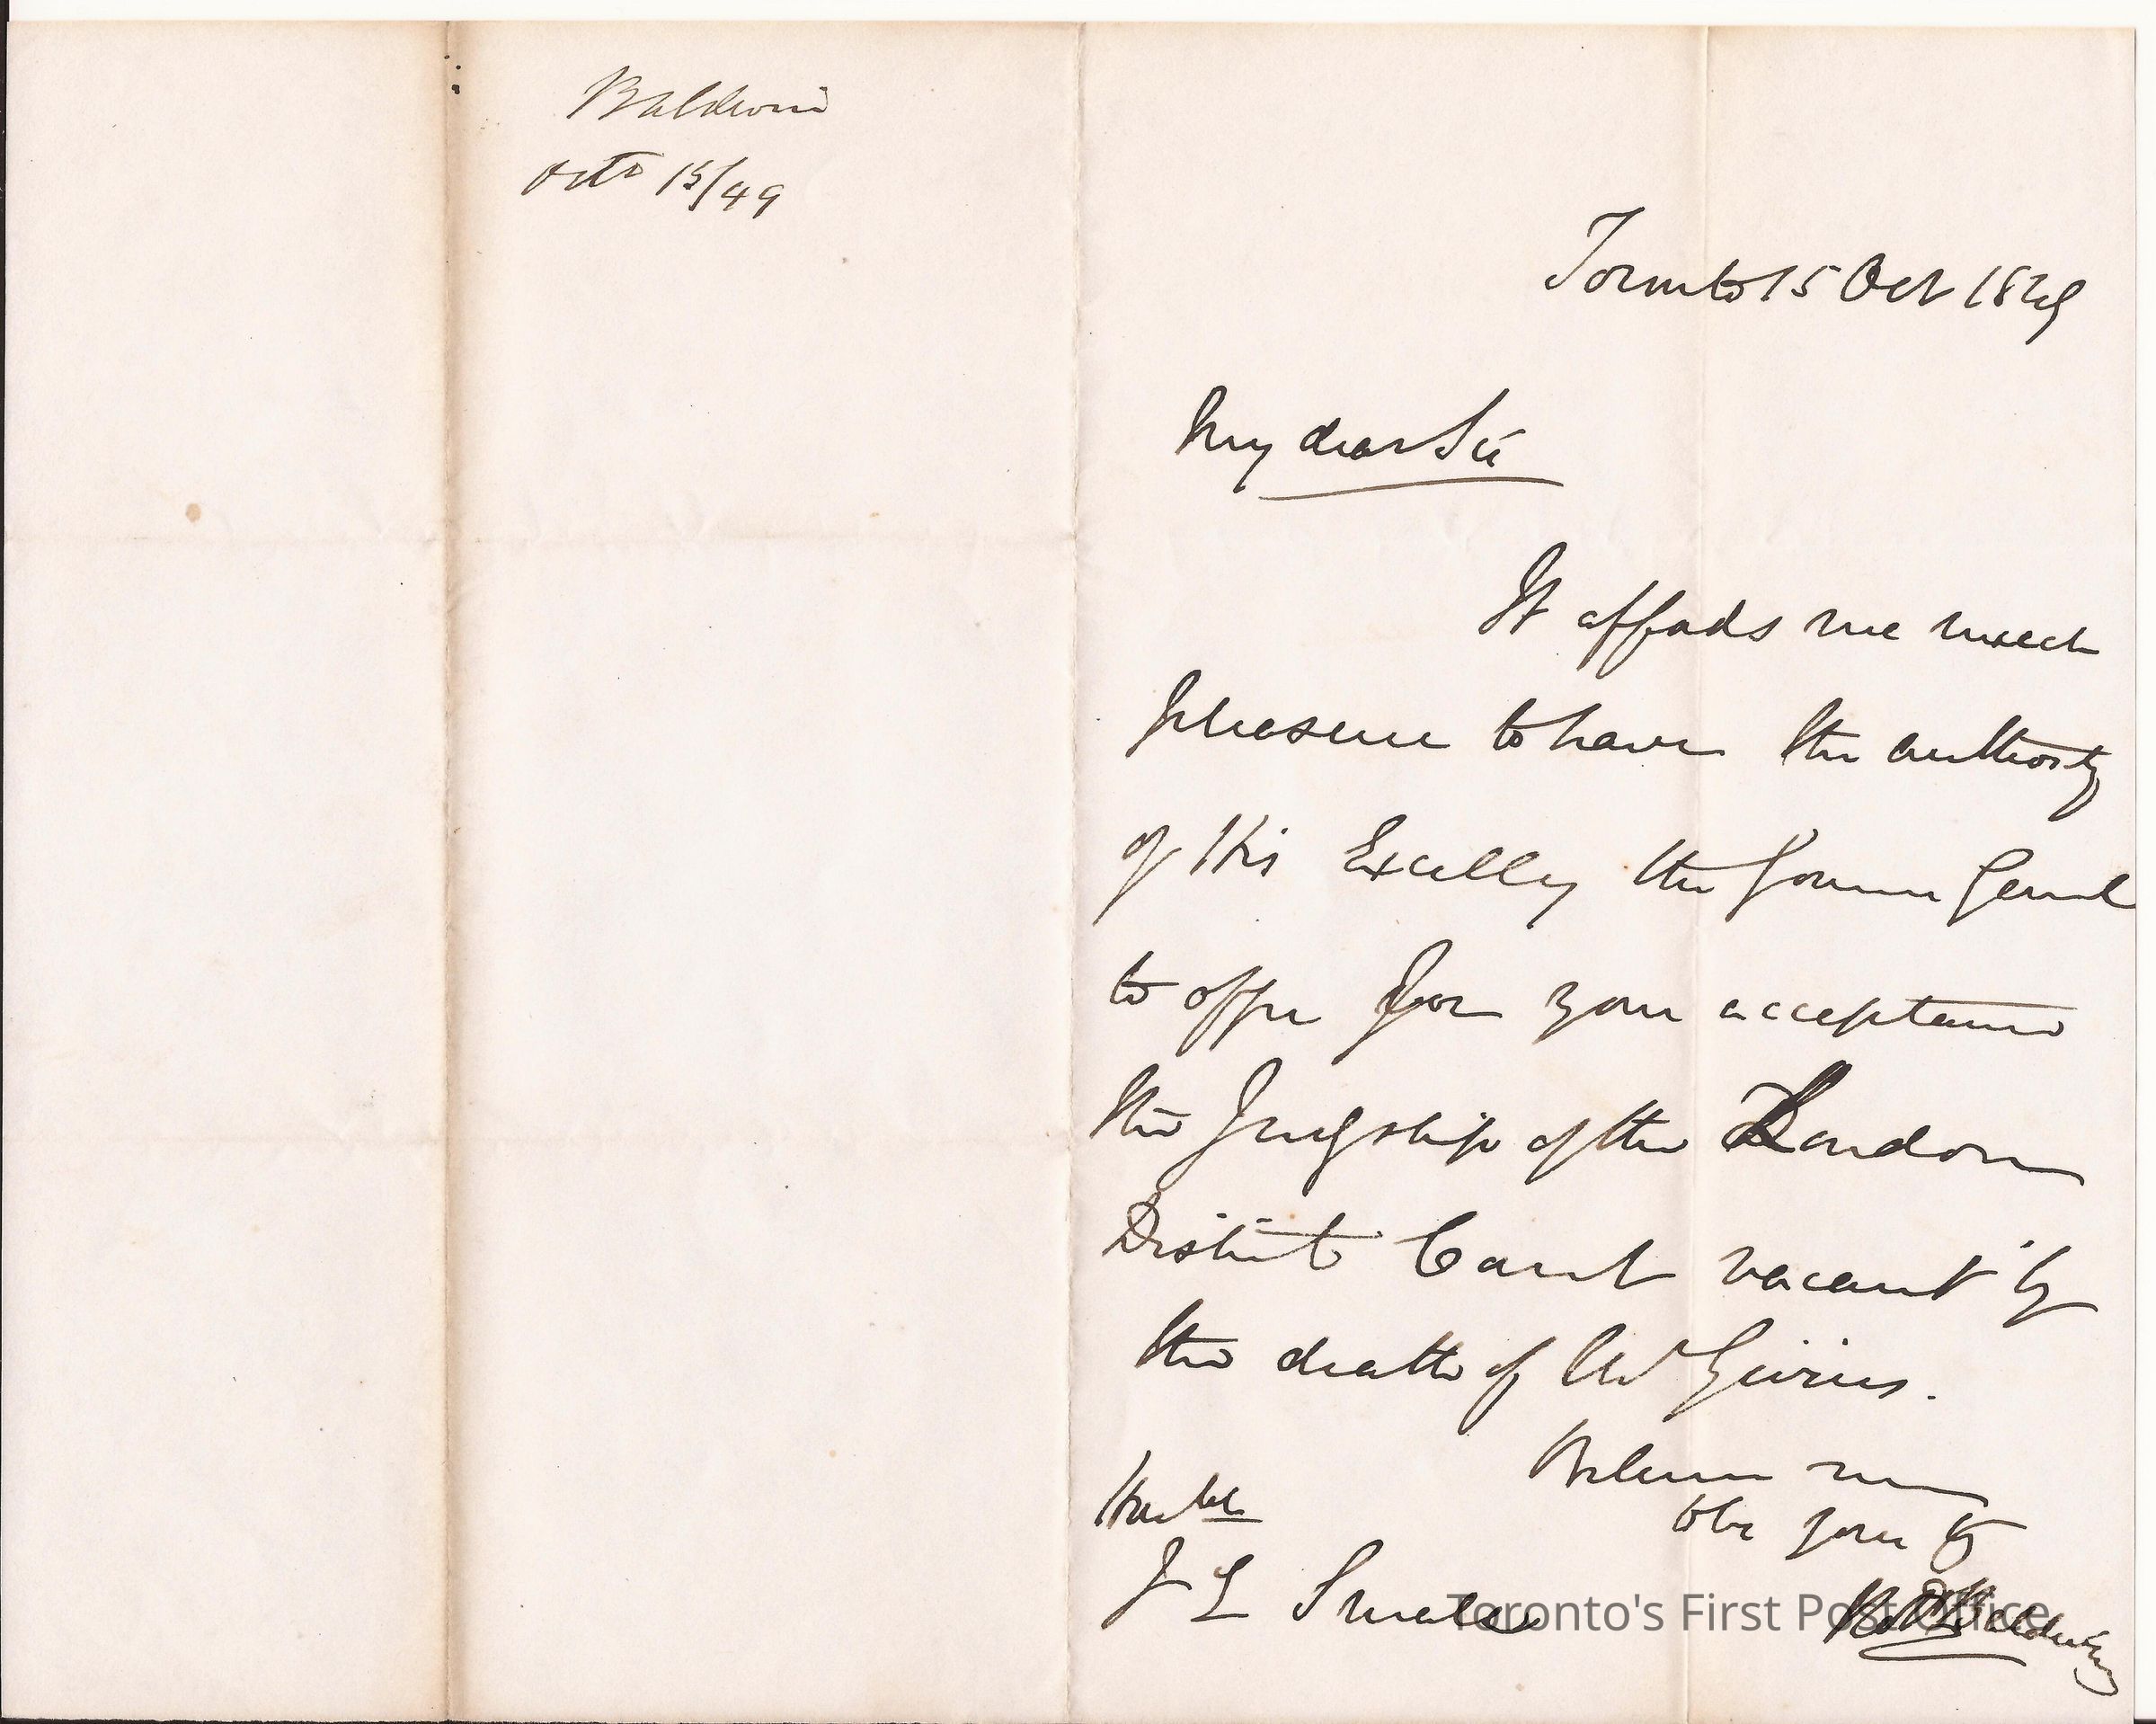 Baldwin
Octo 15/49
Toronto 15 Oct 1849
My dear Sir
It affords me much
pleasure to have the authority
of His Excelly the Govenr Genl
to offer for your acceptance
the Judgship of the London
District Court vacant by
the death of Mr Givins.
Believe me
to be your
Honble
J E Small
Robt Baldwin
Toronto's First Post Office